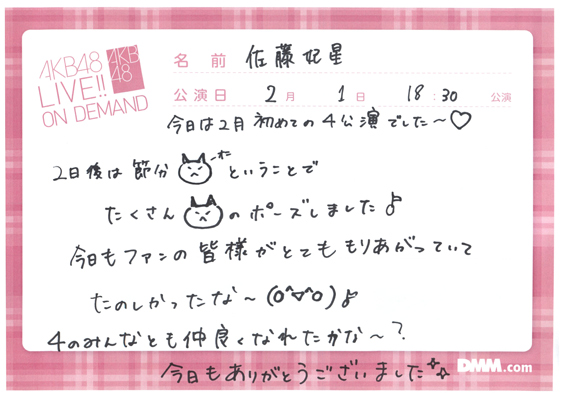 AKB48
LIVE!!
ON DEMAND
AKB
48
名前 佐藤妃星
公演日 2月 1日 18:30 公演
今日は2月初めての4公演でした〜♡
2日後は節分 ということで
たくさん のポーズしました♪
今日もファンの皆様がとてももりあがっていて
たのしかったな〜(o^▽^o)♪
4のみんなとも仲良くなれたかな〜?
今日もありがとうございました
DMM.com